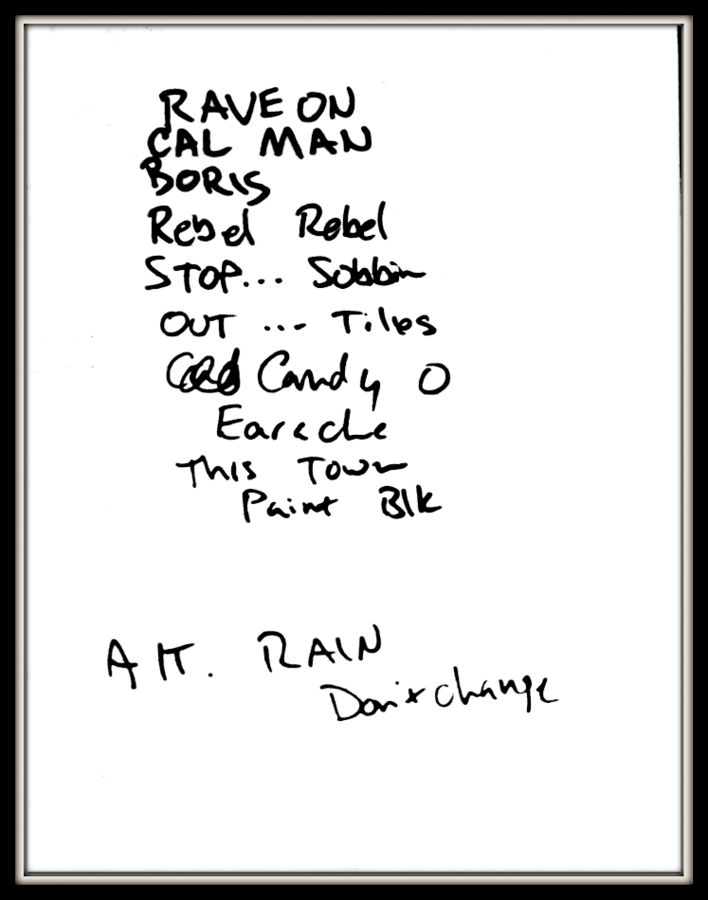 RAVE ON
CAL MAN
BORIS
Rebel Rebel
STOP... Sobbin
OUT ... Tiles
Candy O
Earache
This Town
Paint Blk
A IT. RAIN
Don't change